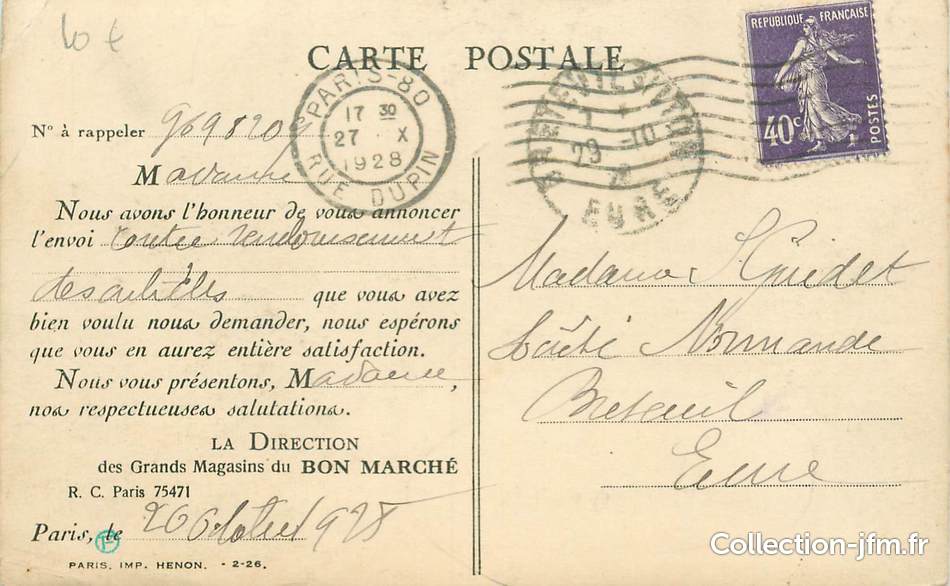 10 €
CARTE POSTALE
REPUBLIQUE FRANÇAISE
40c
POSTES
PARIS-80
17 30
27 X
1928
RUE DUPIN
29 - 10
EURE
Nº à rappeler
Madame
Nous avons l'honneur de vous annoncer
l'envoi contre remboursement
des articles que vous avez
bien voulu nous demander, nous espérons
que vous en aurez entière satisfaction.
Nous vous présentons, Madame,
nos respectueuses salutations.
LA DIRECTION
des Grands Magasins du BON MARCHÉ
R. C. Paris 75471
Paris, le 26 Octobre 1928
PARIS. IMP. HENON. - 2-26.
Madame Guidet
Normande
Breteuil
Eure
© Collection-jfm.fr